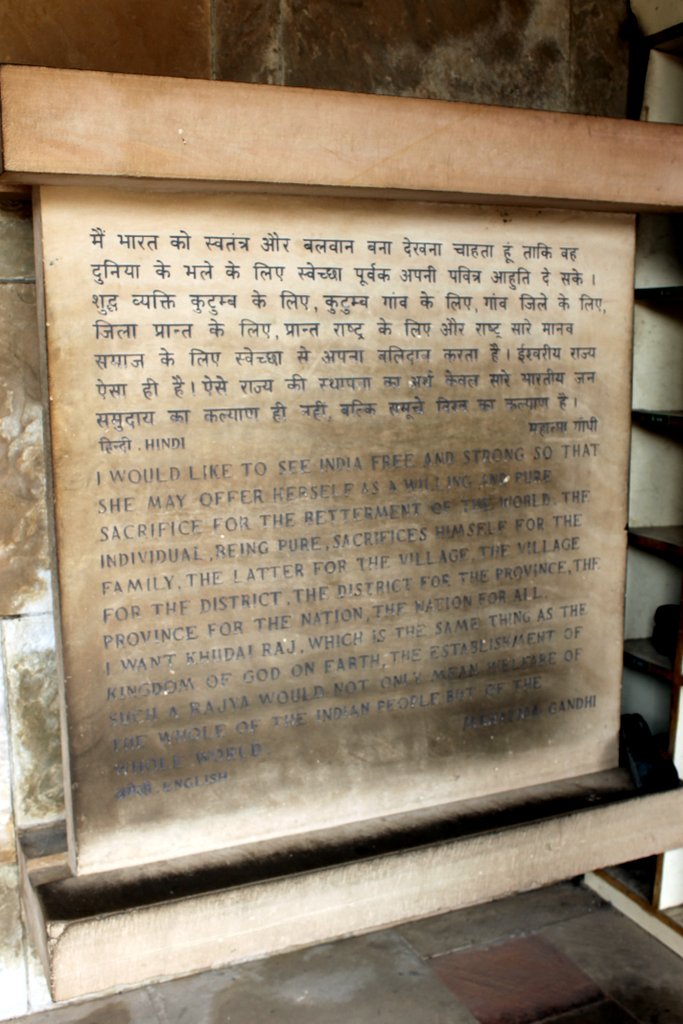 मैं भारत को स्वतंत्र और बलवान बना देखना चाहता हूं ताकि वह
दुनिया के भले के लिए स्वेच्छा पूर्वक अपनी पवित्र आहुति दे सके ।
शुद्ध व्यक्ति कुटुम्ब के लिए, कुटुम्ब गांव के लिए, गांव जिले के लिए,
जिला प्रान्त के लिए, प्रान्त राष्ट्र के लिए और राष्ट्र सारे मानव
समाज के लिए स्वेच्छा से अपना बलिदान करता है । ईश्वरीय राज्य
ऐसा ही है । ऐसे राज्य की स्थापना का अर्थ केवल सारे भारतीय जन
समुदाय का कल्याण ही नहीं, बल्कि समूचे विश्व का कल्याण है ।
महात्मा गाँधी
हिन्दी . HINDI
I WOULD LIKE TO SEE INDIA FREE AND STRONG SO THAT
SHE MAY OFFER HERSELF AS A WILLING AND PURE
SACRIFICE FOR THE BETTERMENT OF THE WORLD. THE
INDIVIDUAL, BEING PURE, SACRIFICES HIMSELF FOR THE
FAMILY, THE LATTER FOR THE VILLAGE, THE VILLAGE
FOR THE DISTRICT, THE DISTRICT FOR THE PROVINCE, THE
PROVINCE FOR THE NATION, THE NATION FOR ALL.
I WANT KHUDAI RAJ, WHICH IS THE SAME THING AS THE
KINGDOM OF GOD ON EARTH, THE ESTABLISHMENT OF
SUCH A RAJYA WOULD NOT ONLY MEAN WELFARE OF
THE WHOLE OF THE INDIAN PEOPLE BUT OF THE
WHOLE WORLD.
MAHATMA GANDHI
ENGLISH